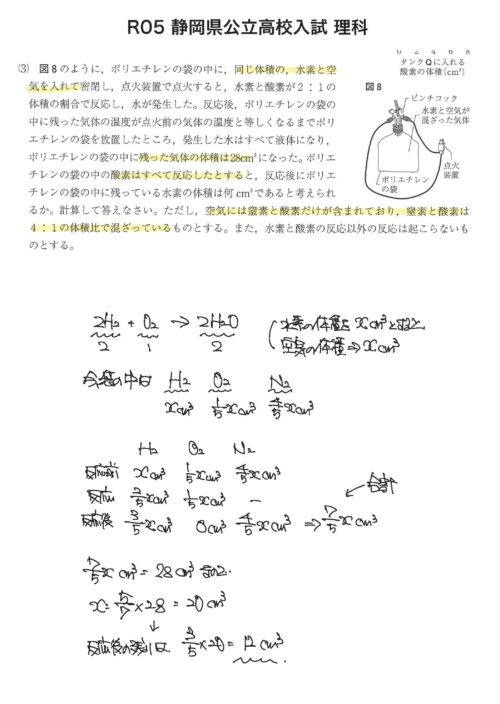 R05 静岡県公立高校入試 理科
0 2 4 6 8
タンクQに入れる
酸素の体積(cm³)
(3) 図8のように，ポリエチレンの袋の中に，同じ体積の，水素と空
気を入れて密閉し，点火装置で点火すると，水素と酸素が2：1の
体積の割合で反応し，水が発生した。反応後，ポリエチレンの袋の
中に残った気体の温度が点火前の気体の温度と等しくなるまでポリ
エチレンの袋を放置したところ，発生した水はすべて液体になり，
ポリエチレンの袋の中に残った気体の体積は28cm³になった。ポリエ
チレンの袋の中の酸素はすべて反応したとすると，反応後にポリエ
チレンの袋の中に残っている水素の体積は何cm³であると考えられ
るか。計算して答えなさい。ただし，空気には窒素と酸素だけが含まれており，窒素と酸素は
4：1の体積比で混ざっているものとする。また，水素と酸素の反応以外の反応は起こらないも
のとする。
図8
ピンチコック
水素と空気が
混ざった気体
点火
装置
ポリエチレン
の袋
2H₂ + O₂ → 2H₂O
2 1 2
水素の体積をxcm³とすると
空気の体積⇒xcm³
H₂ O₂ N₂
xcm³ 1/5xcm³ 4/5xcm³
H₂ O₂ N₂
反応前 xcm³ 1/5xcm³ 4/5xcm³
反応 2/5xcm³ 1/5xcm³ −
反応後 3/5xcm³ 0cm³ 4/5xcm³ ⇒ 7/5xcm³
合計
7/5xcm³ = 28cm³ なので
x = 5/7×28 = 20cm³
反応後の 3/5×20 = 12cm³